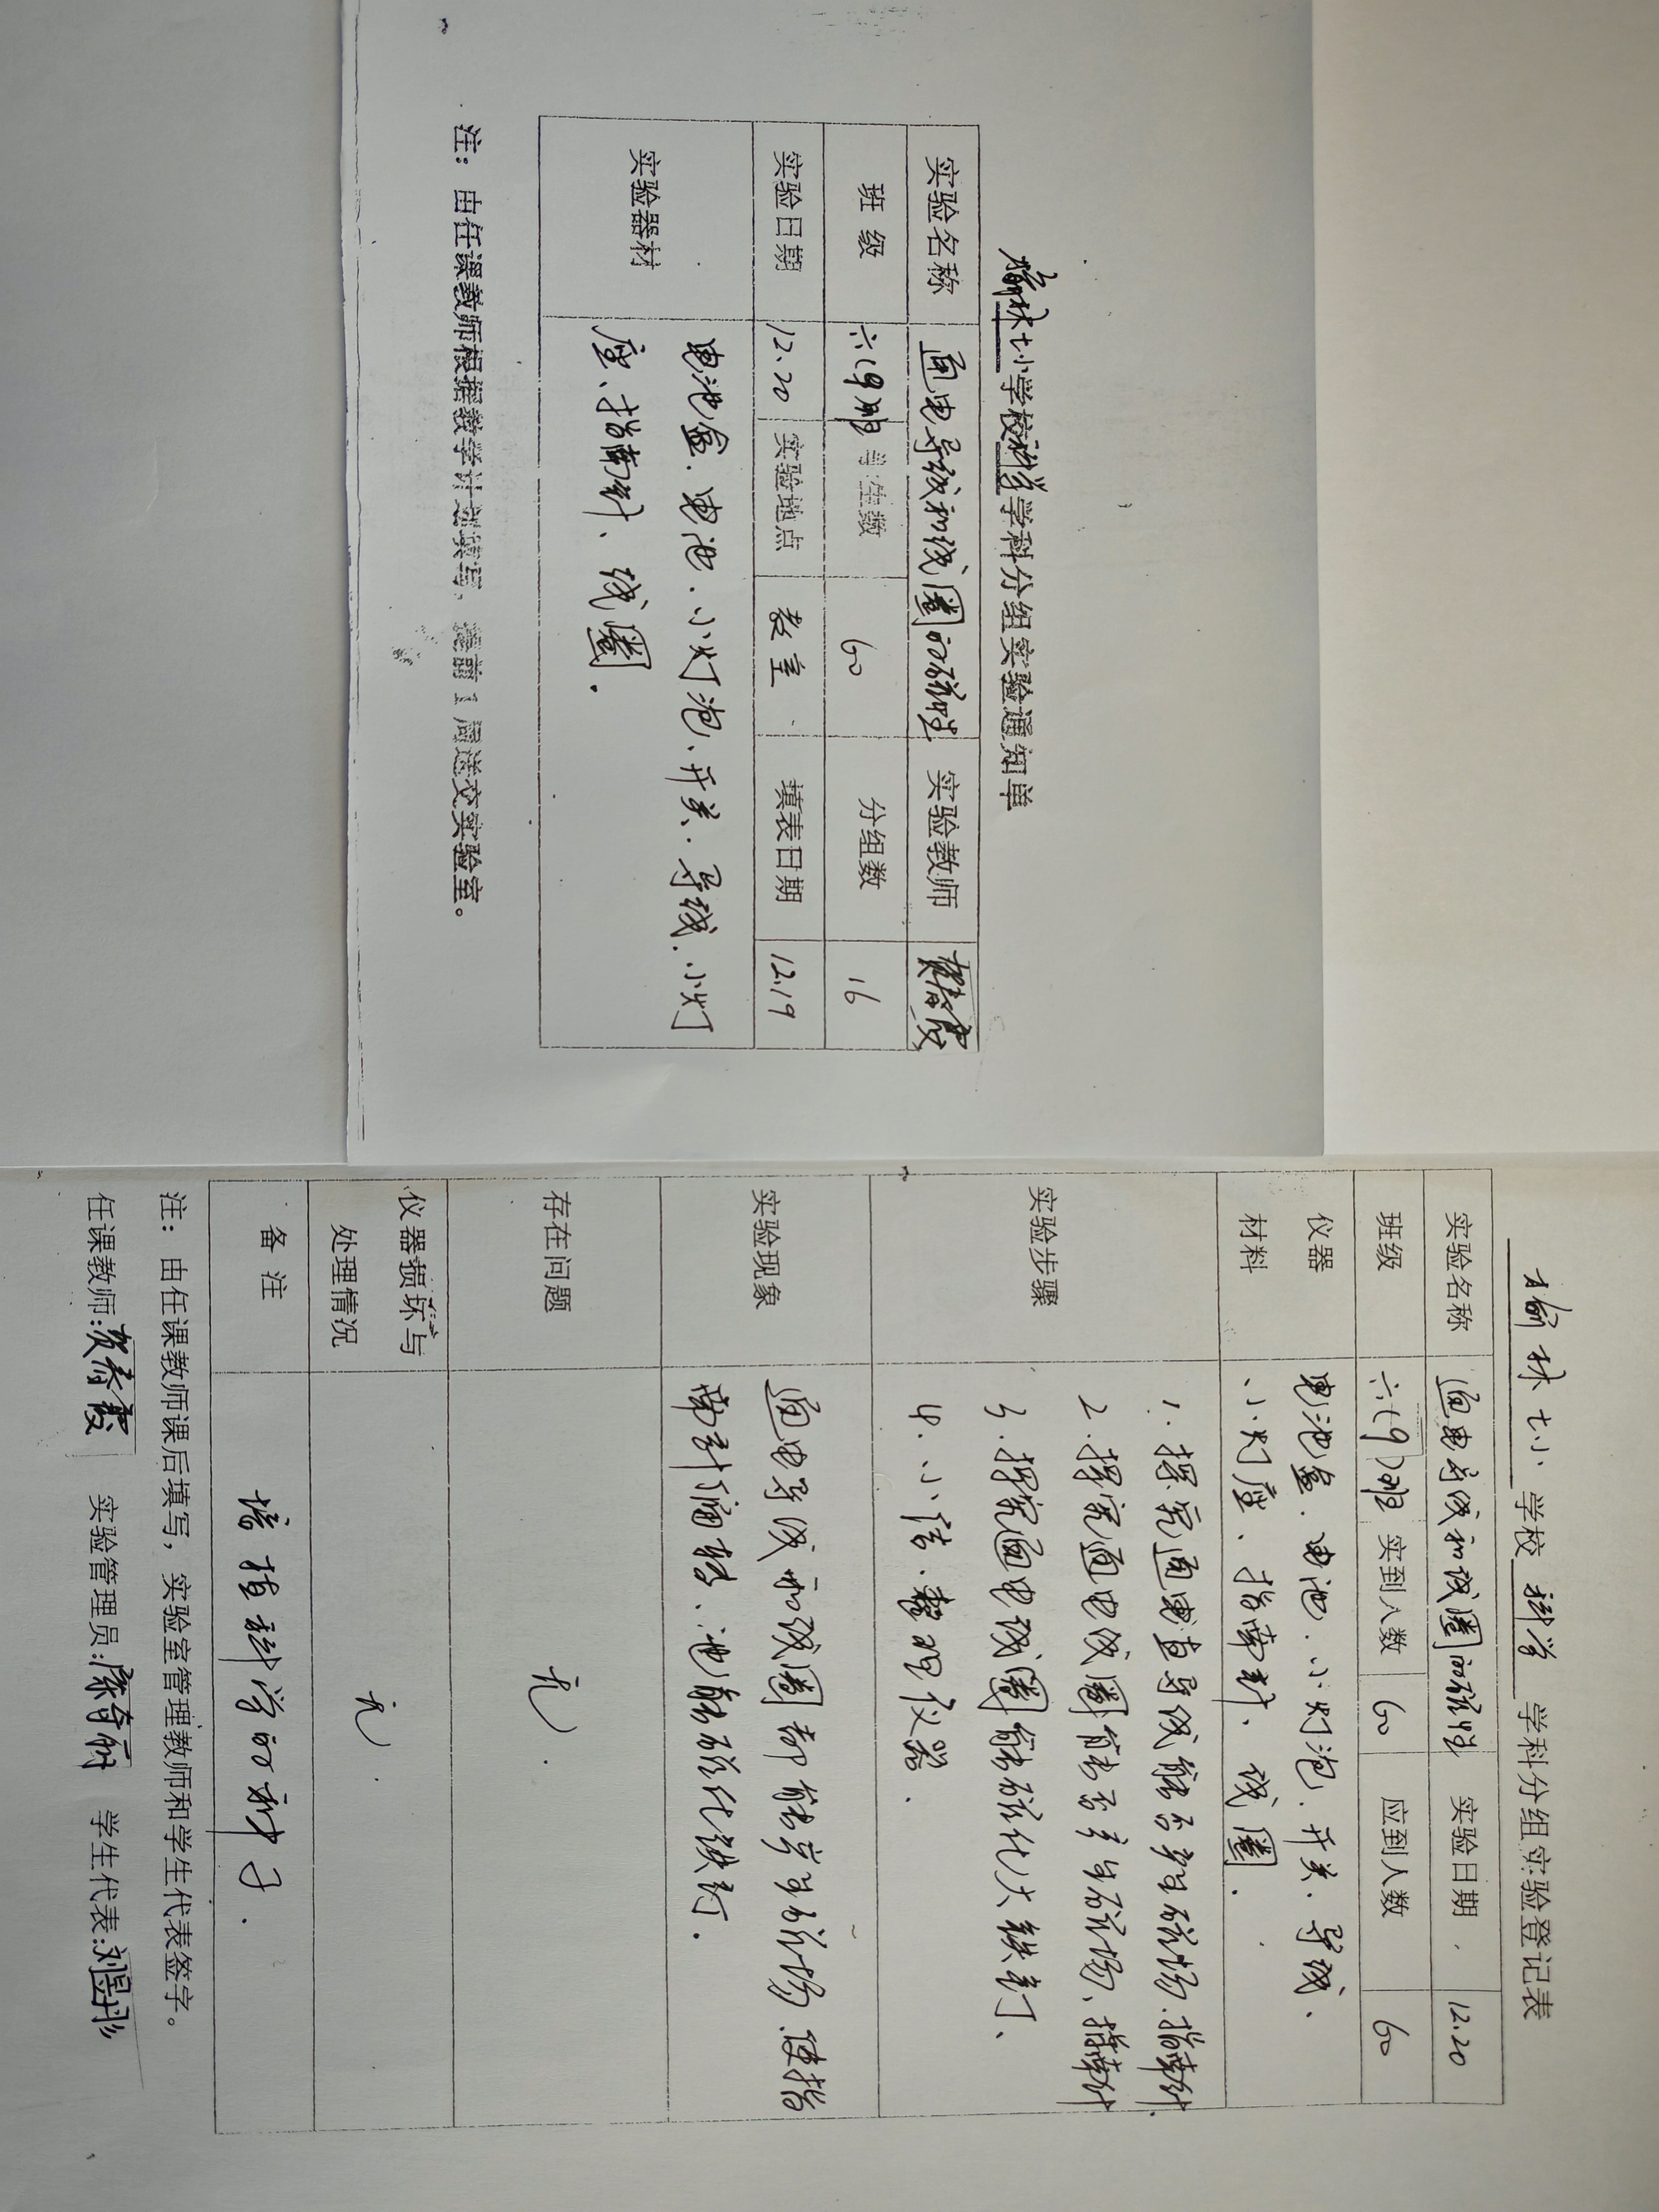 榆林七小学校科学学科分组实验通知单
实验名称 通电导线和线圈的磁性 实验教师 贺春霞
班 级 六(9)班 学生数 60 分组数 16
实验日期 12.20 实验地点 教室 填表日期 12.19
实验器材 电池盒、电池、小灯泡、开关、导线、小灯
座、指南针、线圈.
注: 由任课教师根据教学计划填写, 提前1周送交实验室。
榆林七小 学校 科学 学科分组实验登记表
实验名称 通电导线和线圈的磁性 实验日期 12.20
班级 六(9)班 实到人数 60 应到人数 60
仪器材料 电池盒、电池、小灯泡、开关、导线、
小灯座、指南针、线圈.
实验步骤 1.探究通电直导线能否产生磁场.指南针
2.探究通电线圈能否产生磁场、指南针
3.探究通电线圈能磁化大铁钉、
4.小结、整理仪器.
实验现象 通电导线和线圈都能产生磁场.使指
南针偏转、也能磁化铁钉.
存在问题 无.
仪器损坏与处理情况 无.
备 注 培植科学的种子.
注: 由任课教师课后填写, 实验室管理教师和学生代表签字。
任课教师:贺春霞 实验管理员: 学生代表: